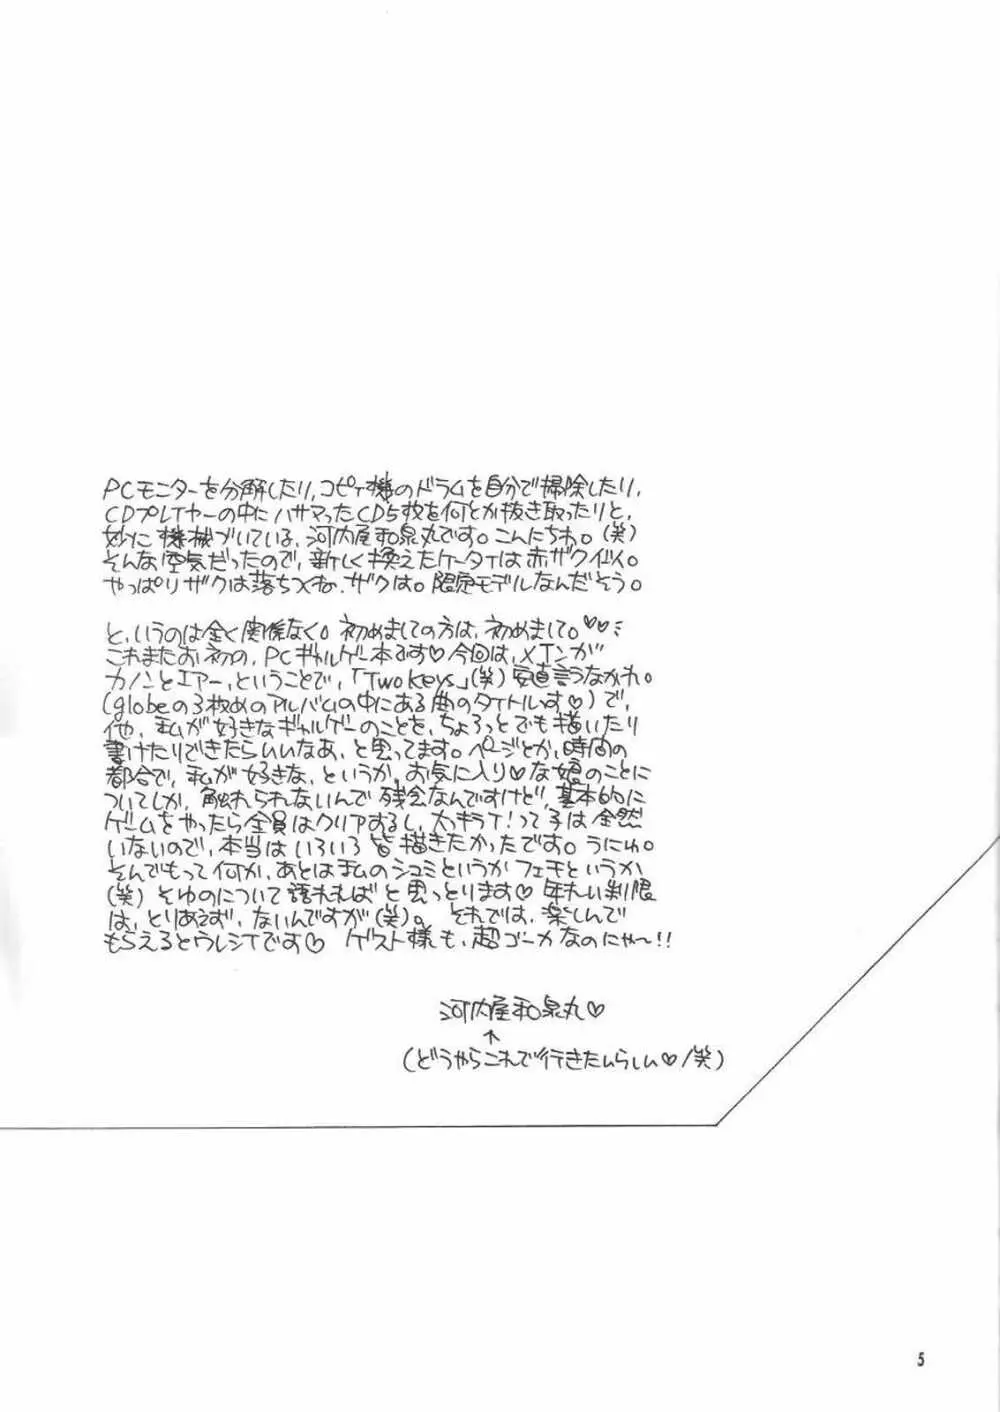 PCモニターを分解したり、コピィ機のドラムを自分で掃除したり、
CDプレイヤーの中にハサマったCD5枚を何とか抜き取ったりと、
妙に機械づいている、河内屋和泉丸です。こんにちわ。(笑)
そんな空気だったので、新しく換えたケータイは赤ザクイ似。
やっぱりザクは落ちつくね、ザクは。限定モデルなんだそう。
と、いうのは全く関係なく。初めましての方は、初めまして。♡♡
これまたお初の、PCギャルゲー本るす♡今回は、メインが
カノンとエアー、ということで、「Two Keys」(笑)安直言うなかれ。
(globeの3枚めのアルバムの中にある曲のタイトルっす♡)で、
他、私が好きなギャルゲーのことを、ちょろっとでも描いたり
書けたりできたらいいなあ、と思ってます。ページとか、時間の
都合で、私が好きな、というか、お気に入り♡な娘のことに
ついてしか、触れられないんで残念なんですけど、基本的に
ゲームをやったら全員はクリアするし、大キライ!って子は全然
いないので、本当はいろいろ皆描きたかったです。うにゅ。
そんでもって何か、あとは私のシュミというかフェチというか
(笑)そゆのについて語れればと思っとります♡年れい制限
は、とりあえず、ないんですが(笑)。それでは、楽しんで
もらえるとウレシイです♡ ゲスト様も、超ゴーカなのにゃ〜!!
河内屋和泉丸♡
↑
(どうやらこれで行きたいらしい♡/笑)
5